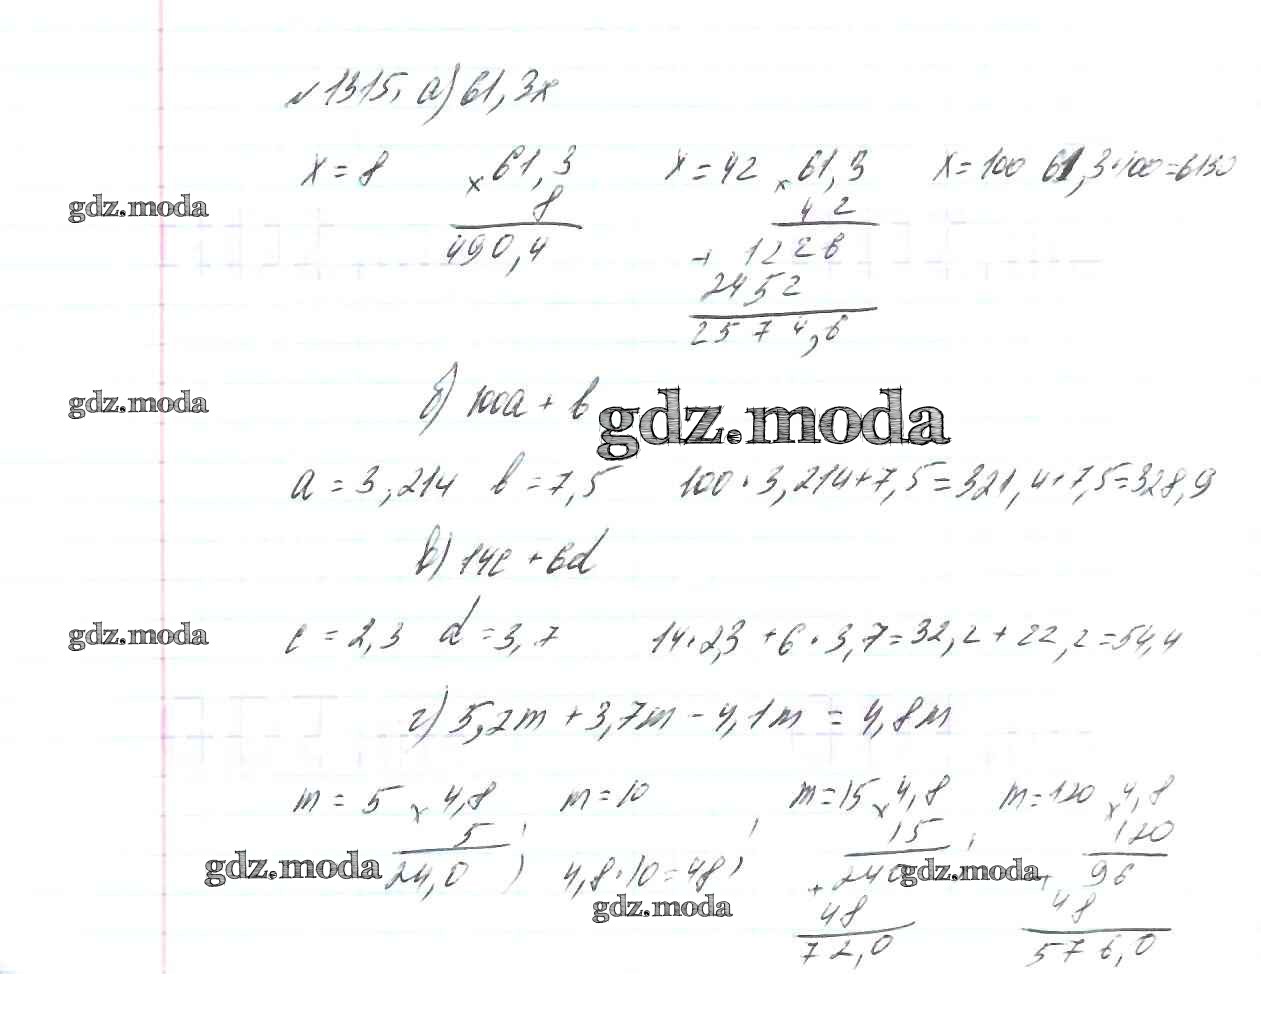 №1315. а) 61,3x
x = 8 × 61,3 x = 42 × 61,3 x = 100 61,3·100=6130
gdz.moda
8 42
490,4 + 1226
2452
2574,6
gdz.moda
б) 100a + b gdz.moda
a = 3,214 b = 7,5 100·3,214+7,5=321,4+7,5=328,9
в) 14c + 6d
gdz.moda
c = 2,3 d = 3,7 14·2,3 + 6·3,7=32,2 + 22,2=54,4
г) 5,2m + 3,7m - 4,1m = 4,8m
m = 5 × 4,8 m = 10 m=15 × 4,8 m=120 × 4,8
5 ; 15 ; 120
gdz.moda 24,0 4,8·10=48 + 240 gdz.moda + 96
gdz.moda
48 48
72,0 576,0